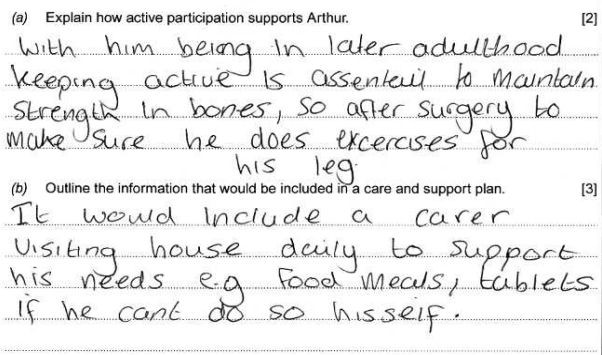 (a) Explain how active participation supports Arthur. [2]
With him being in later adulthood
keeping active is assenteil to maintain
strength in bones, so after surgery to
make sure he does excercises for
his leg.
(b) Outline the information that would be included in a care and support plan. [3]
It would include a carer
visiting house daily to support
his needs e.g food meals, tablets
if he cant do so hisself.